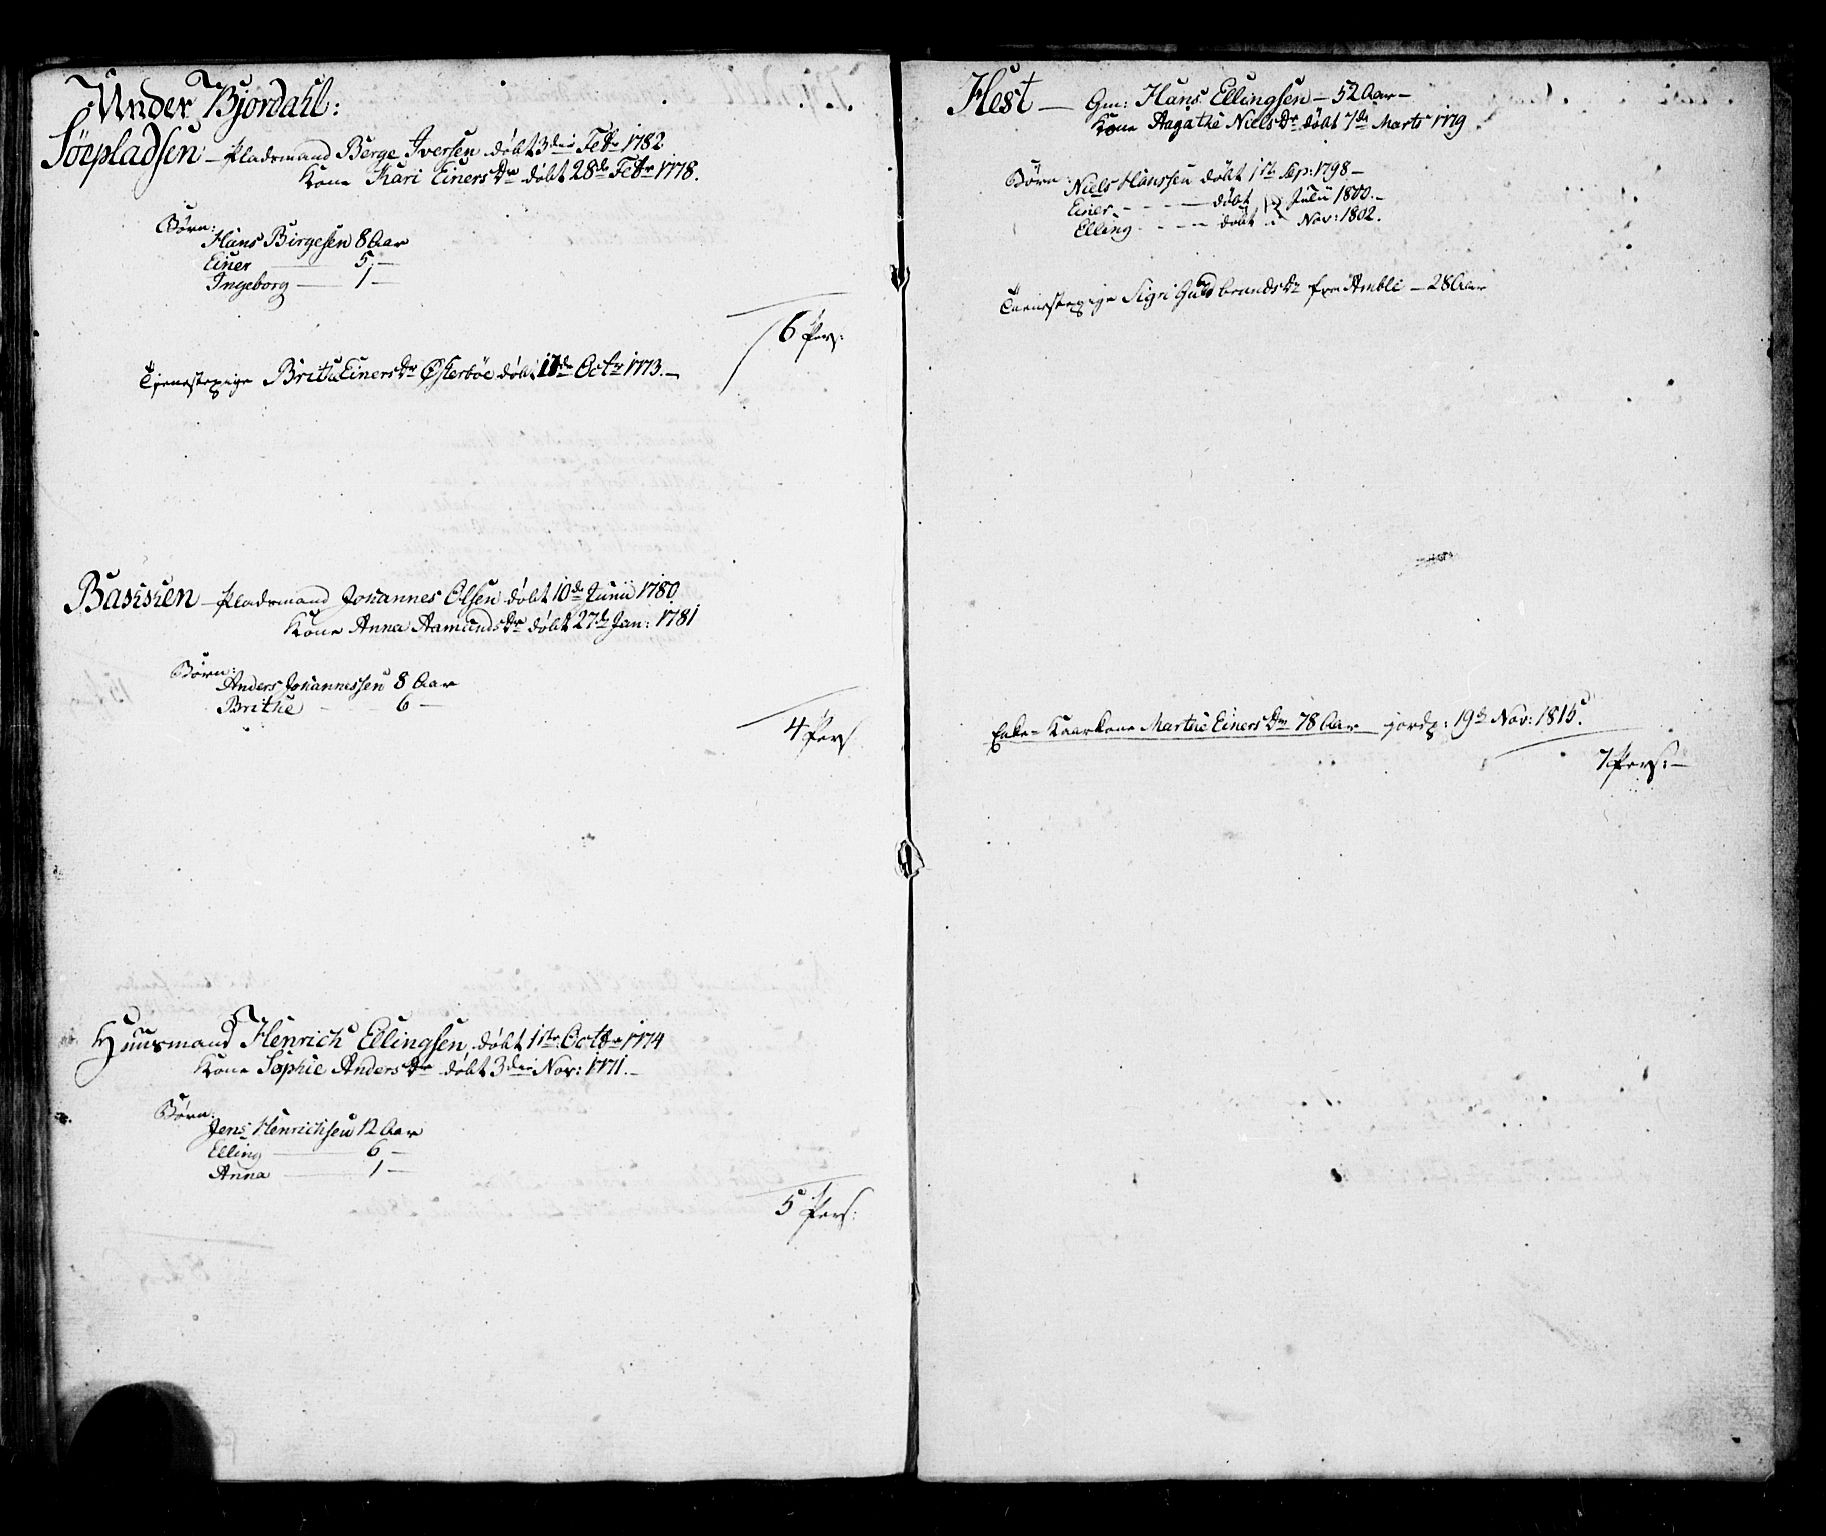 Under Bjordahl:
Sørpladsen – Pladsmand Berge Iversen døbt 3die Febr 1782
Kone Kari Einers Dr døbt 28de Febr 1778.
Børn:
Hans Birgesen 8 Aar
Einer — 5 —
Ingeborg — 1 —
6 Pers:
Tjenestepige Brithe Einers Dr Østerbøe døbt 17de Octr 1773. —
Bassien – Pladsmand Johannes Olsen døbt 10de Junii 1780
Kone Anna Aamunds Dr døbt 27de Jan: 1781
Børn:
Anders Johannessen 8 Aar
Brithe - - 6 —
4 Pers
Huusmand Henrich Ellingsen døbt 1ste Octbr 1774
Kone Sophie Anders Dr døbt 3die Nov: 1771. —
Børn:
Jens Henrichsen 12 Aar
Elling — 6 —
Anna — 1 —
5 Pers:
Hest — Gm: Hans Ellingsen — 52 Aar —
Kone Aagathe Niels Dr døbt 7de Marts 1779
Børn:
Niels Hanssen døbt 1ste Sep: 1798 —
Einer - - - — døbt Julii 1800. —
Elling - - - - døbt Nov: 1802.
Tienestepige Sigri Guldbrands Dr fra Ambli — 28 Aar
Enke- Kaarkone Marthe Einers Dr 78 Aar — jordf: 19de Nov: 1815.
7 Pers: —